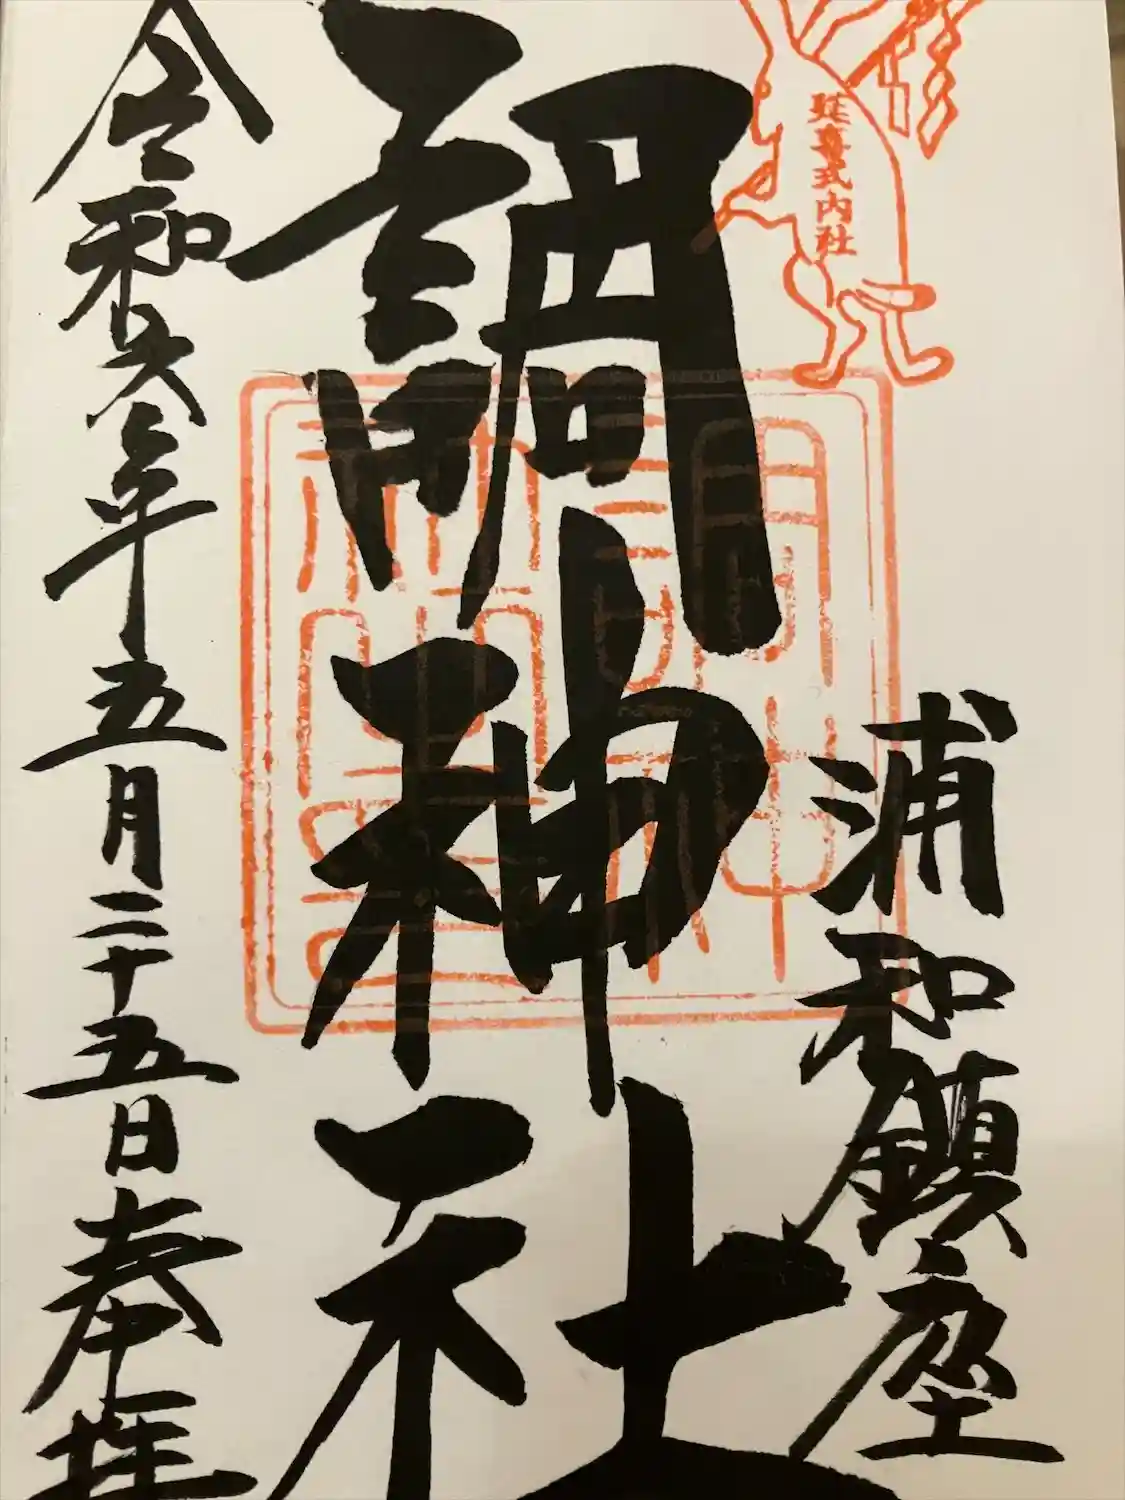 延喜式内社
浦和鎮座
調神社
調神社之印
令和六年五月二十五日奉拝